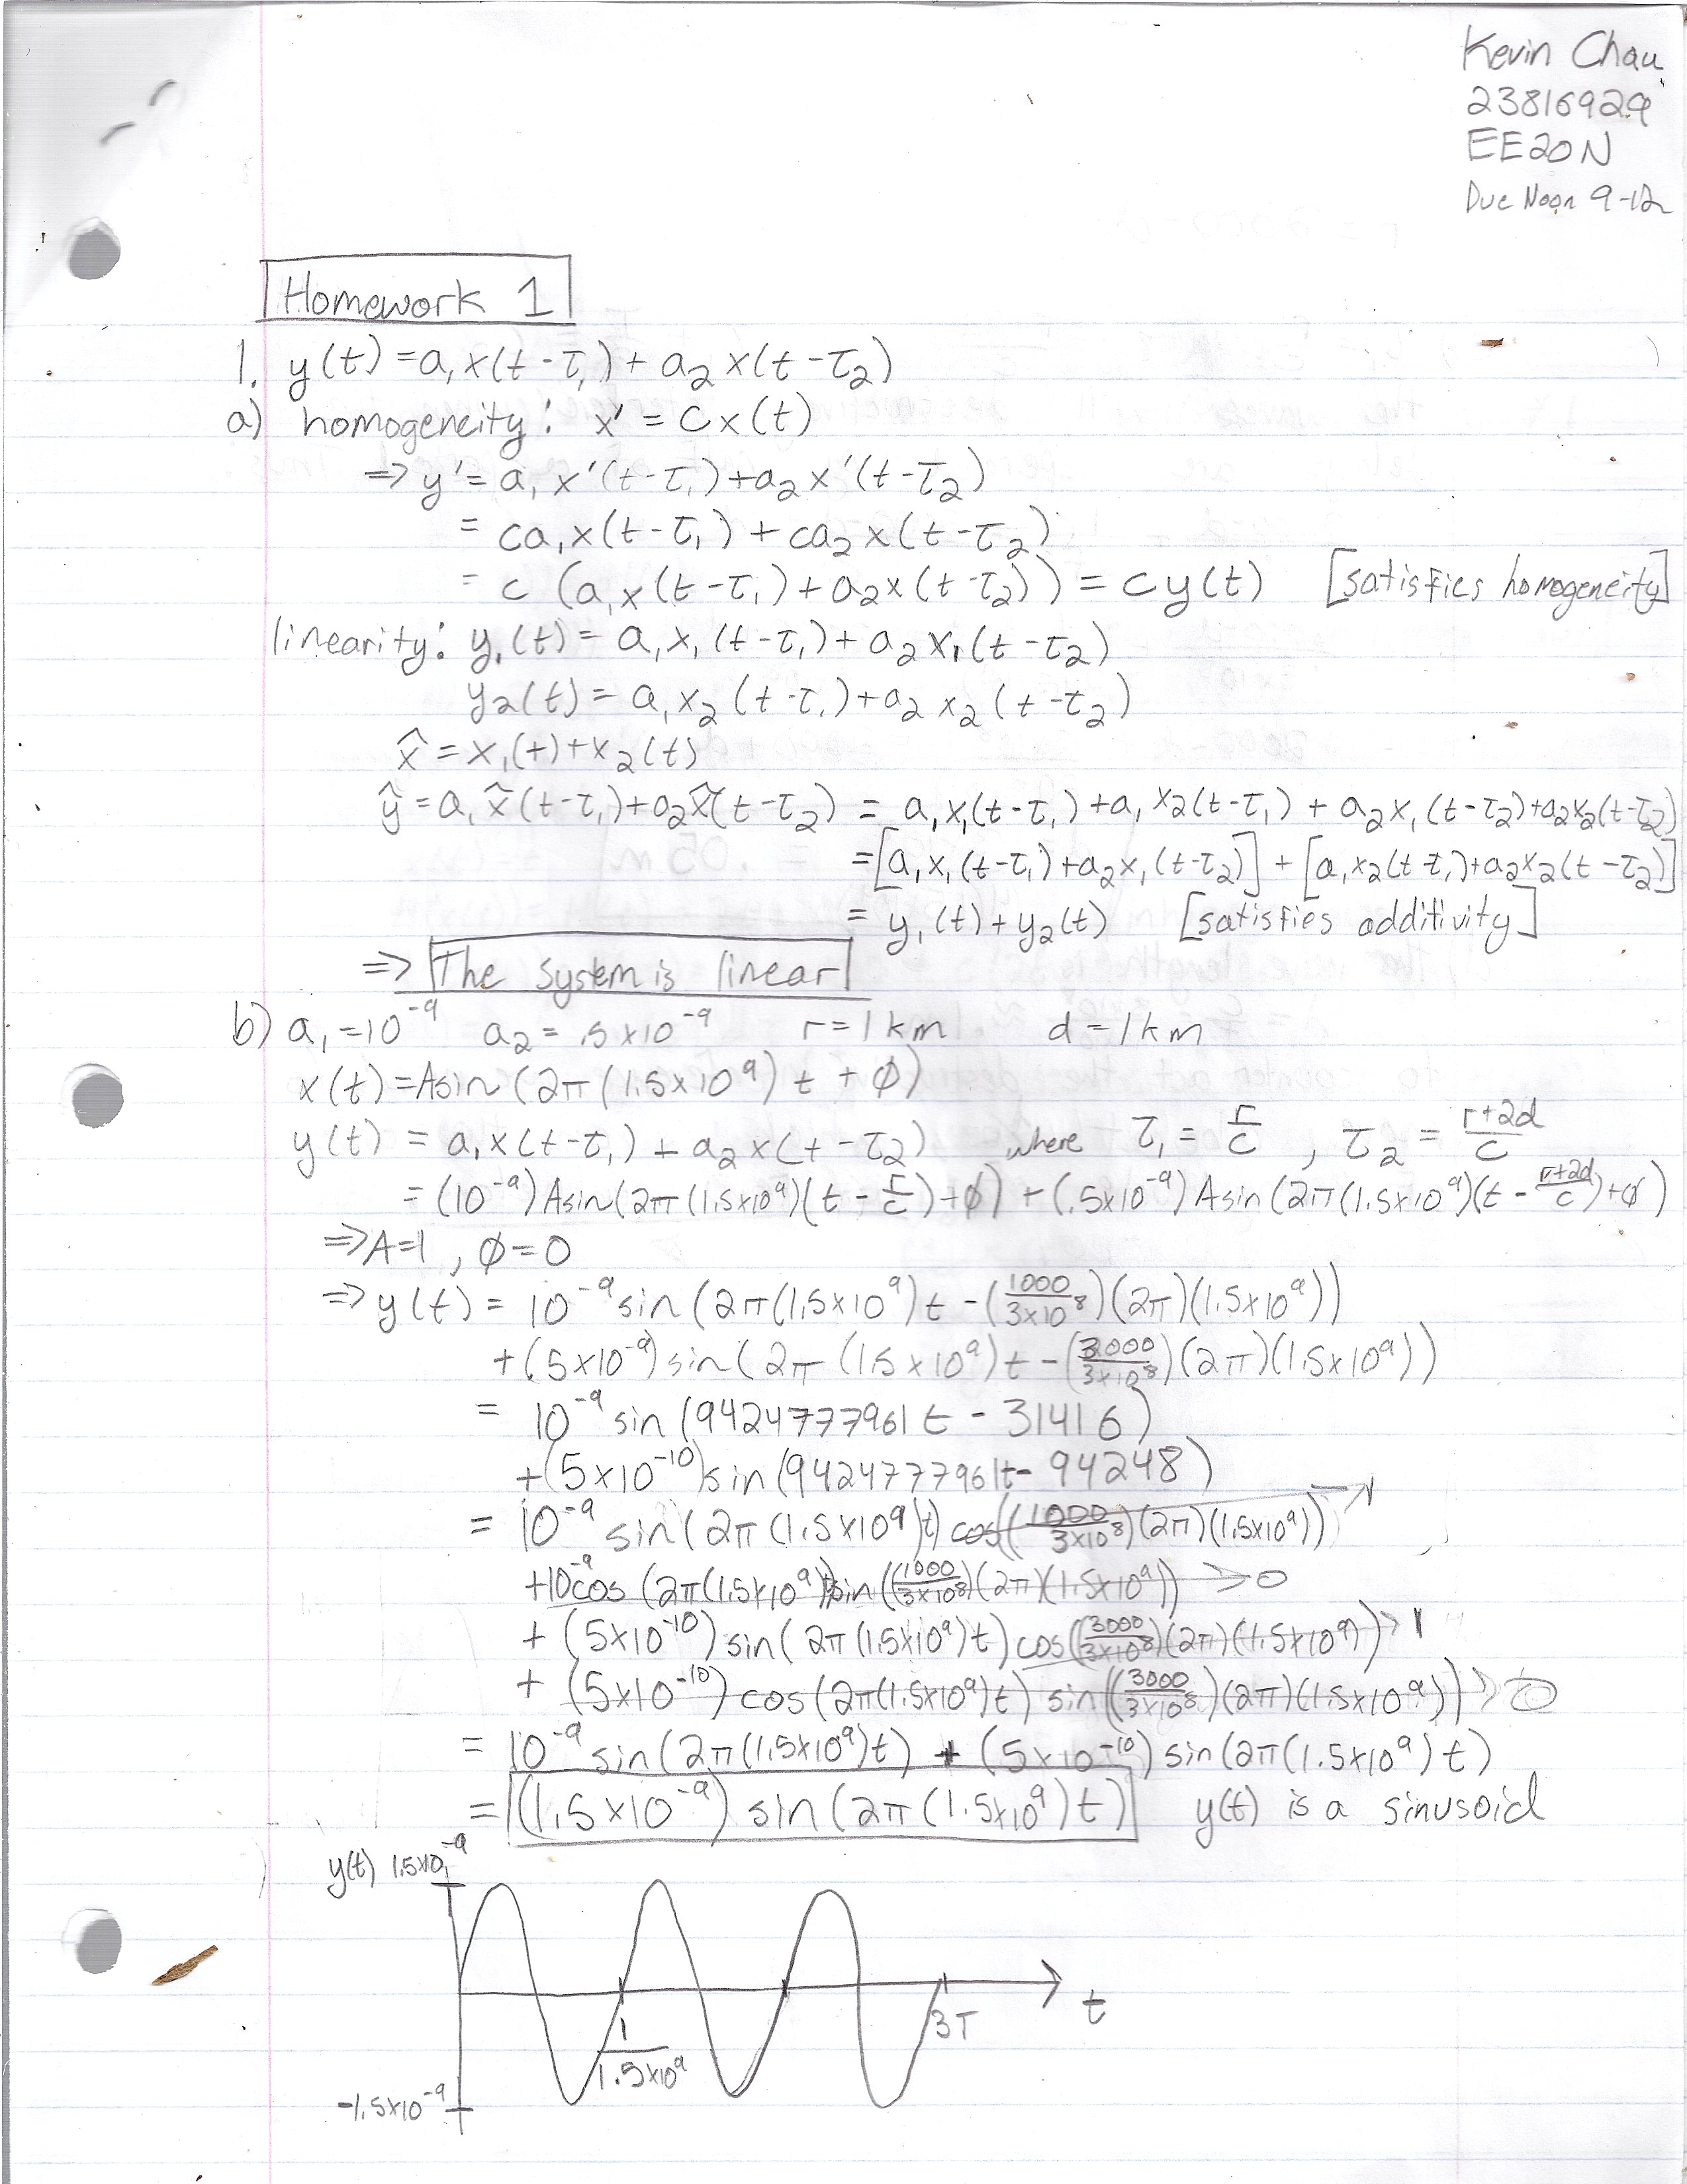 Kevin Chau
23816929
EE20N
Due Noon 9-12
Homework 1
1. y(t) = a₁x(t-τ₁) + a₂x(t-τ₂)
a) homogeneity: x' = cx(t)
⇒ y' = a₁x'(t-τ₁)+a₂x'(t-τ₂)
= ca₁x(t-τ₁) + ca₂x(t-τ₂)
= c (a₁x(t-τ₁)+a₂x(t-τ₂)) = cy(t) [satisfies homogeneity]
linearity: y₁(t) = a₁x₁(t-τ₁)+a₂x₁(t-τ₂)
y₂(t) = a₁x₂(t-τ₁)+a₂x₂(t-τ₂)
x̂ = x₁(t)+x₂(t)
ŷ = a₁x̂(t-τ₁)+a₂x̂(t-τ₂) = a₁x₁(t-τ₁)+a₁x₂(t-τ₁) + a₂x₁(t-τ₂)+a₂x₂(t-τ₂)
= [a₁x₁(t-τ₁)+a₂x₁(t-τ₂)] + [a₁x₂(t-τ₁)+a₂x₂(t-τ₂)]
= y₁(t)+y₂(t) [satisfies additivity]
⇒ The system is linear
b) a₁ = 10⁻⁹ a₂ = .5x10⁻⁹ r = 1km d = 1km
x(t) = Asin(2π(1.5x10⁹)t + φ)
y(t) = a₁x(t-τ₁) + a₂x(t-τ₂) where τ₁ = r/c , τ₂ = (r+2d)/c
= (10⁻⁹)Asin(2π(1.5x10⁹)(t - r/c)+φ) + (.5x10⁻⁹)Asin(2π(1.5x10⁹)(t - (r+2d)/c)+φ)
⇒ A=1, φ=0
⇒ y(t) = 10⁻⁹ sin(2π(1.5x10⁹)t - (1000/3x10⁸)(2π)(1.5x10⁹))
+ (.5x10⁻⁹) sin(2π(1.5x10⁹)t - (3000/3x10⁸)(2π)(1.5x10⁹))
= 10⁻⁹ sin(9424777961t - 31416)
+ (5x10⁻¹⁰) sin(9424777961t - 94248)
= 10⁻⁹ sin(2π(1.5x10⁹)t) cos((1000/3x10⁸)(2π)(1.5x10⁹)) → 1
+10⁻⁹cos(2π(1.5x10⁹)t)sin((1000/3x10⁸)(2π)(1.5x10⁹)) → 0
+ (5x10⁻¹⁰) sin(2π(1.5x10⁹)t) cos((3000/3x10⁸)(2π)(1.5x10⁹)) → 1
+ (5x10⁻¹⁰) cos(2π(1.5x10⁹)t) sin((3000/3x10⁸)(2π)(1.5x10⁹)) → 0
= 10⁻⁹ sin(2π(1.5x10⁹)t) + (5x10⁻¹⁰) sin(2π(1.5x10⁹)t)
= (1.5x10⁻⁹) sin(2π(1.5x10⁹)t) y(t) is a sinusoid
y(t) 1.5x10⁻⁹
t
3T
1/1.5x10⁹
-1.5x10⁻⁹